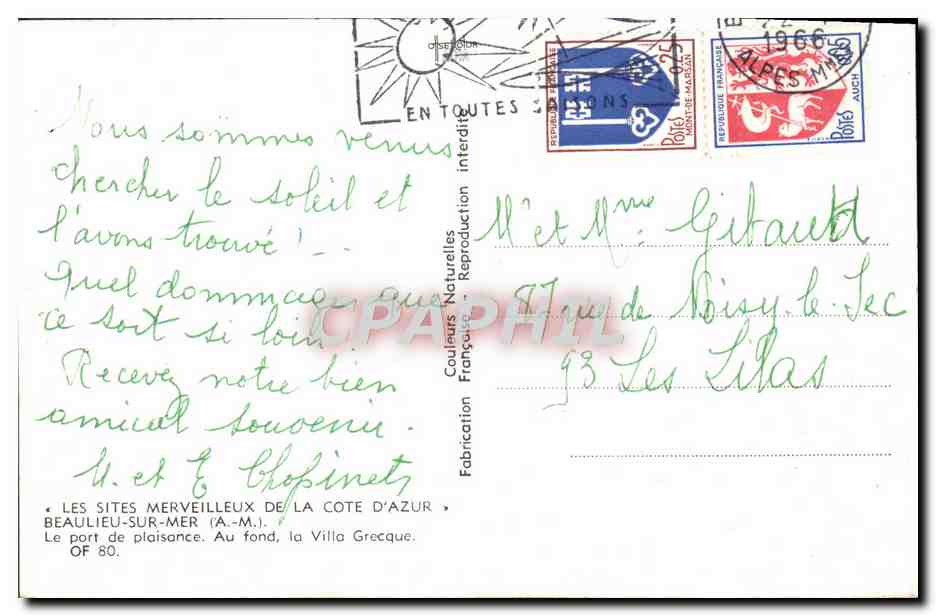 O SEJOUR
EN TOUTES SAISONS
1966
ALPES Mmes
REPUBLIQUE FRANÇAISE
0,25
POSTES
MONT-DE-MARSAN
REPUBLIQUE FRANÇAISE
0,05
POSTES
AUCH
Nous sommes venus
chercher le soleil et
l'avons trouvé!
Quel dommage que
ce soit si loin
Recevez notre bien
amical souvenir.
M. et E Chopinet
« LES SITES MERVEILLEUX DE LA COTE D'AZUR »
BEAULIEU-SUR-MER (A.-M.).
Le port de plaisance. Au fond, la Villa Grecque.
OF 80.
Couleurs Naturelles
Fabrication Française - Reproduction interdite
Mr et Mme Gibault
87 rue de Noisy-le-Sec
93 Les Lilas
CPAPHIL